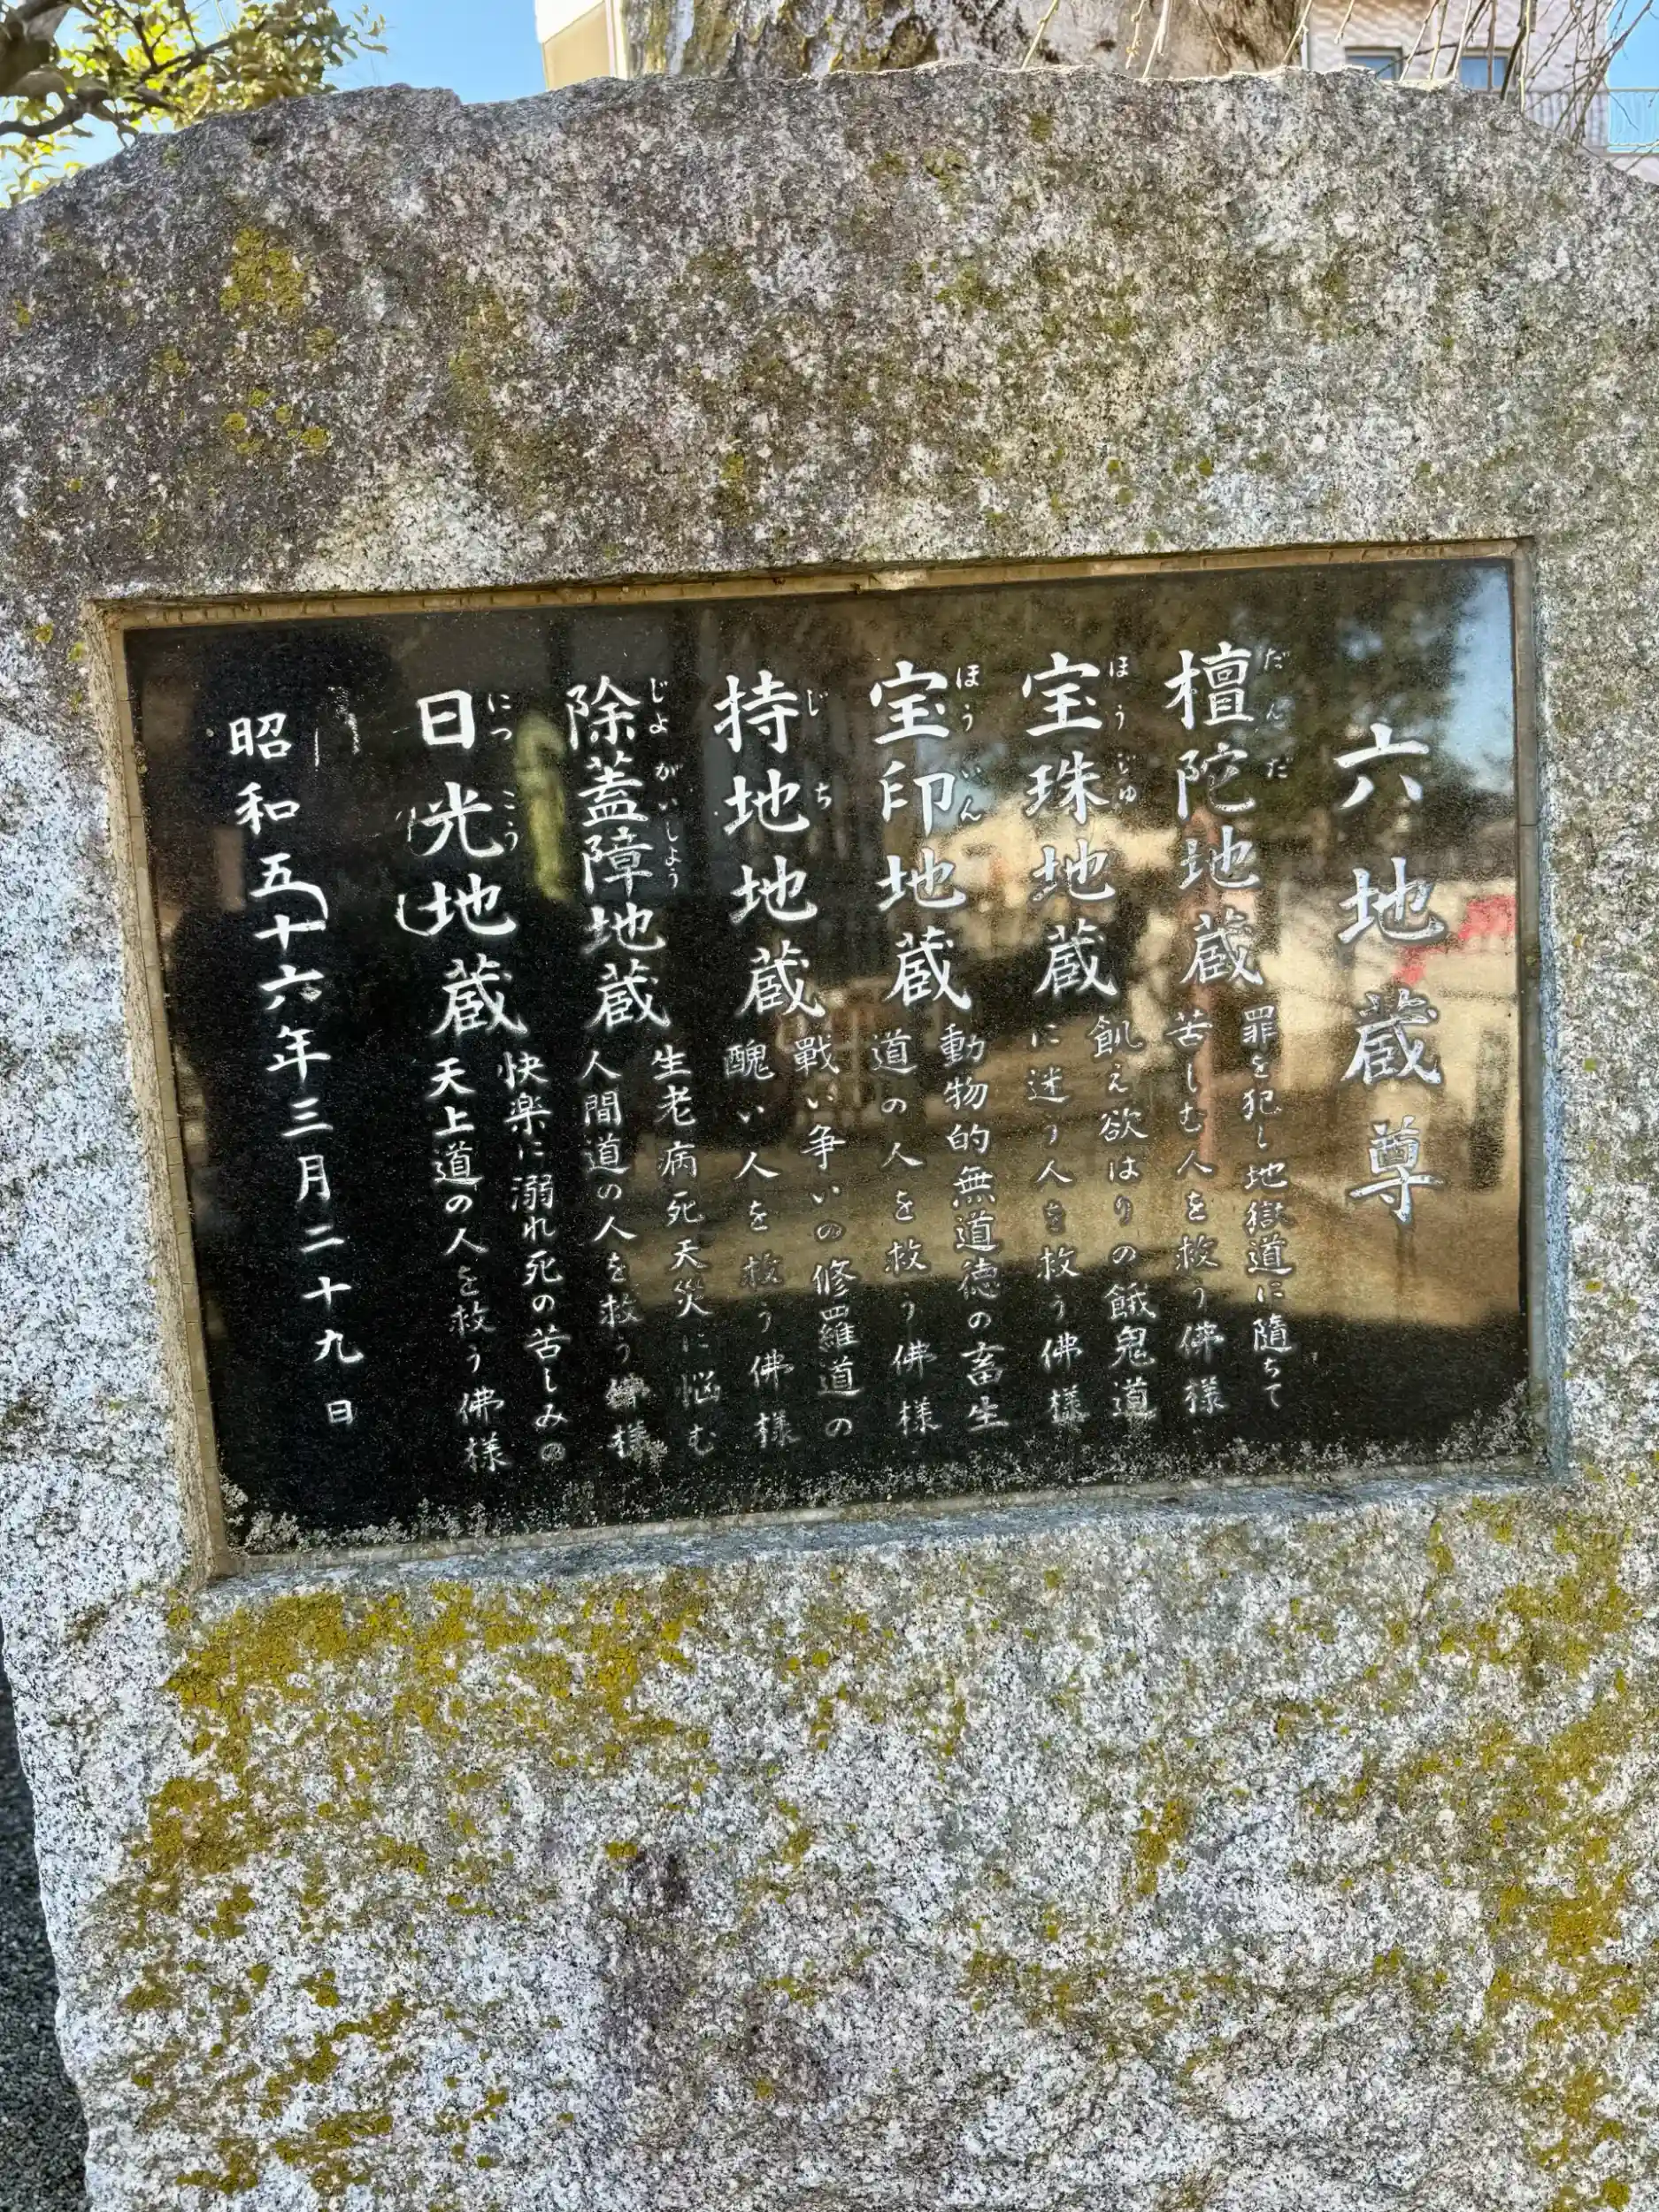 六地蔵尊
檀陀地蔵
だんだ
罪を犯し地獄道に隨ちて
苦しむ人を救う佛様
宝珠地蔵
ほうじゅ
飢え欲はりの餓鬼道
に迷う人を救う佛様
宝印地蔵
ほういん
動物的無道徳の畜生
道の人を救う佛様
持地地蔵
じち
戰い争いの修羅道の
醜い人を救う佛様
除蓋障地蔵
じよがいしよう
生老病死天災に悩む
人間道の人を救う佛様
日光地蔵
につこう
快楽に溺れ死の苦しみの
天上道の人を救う佛様
昭和五十六年三月二十九日